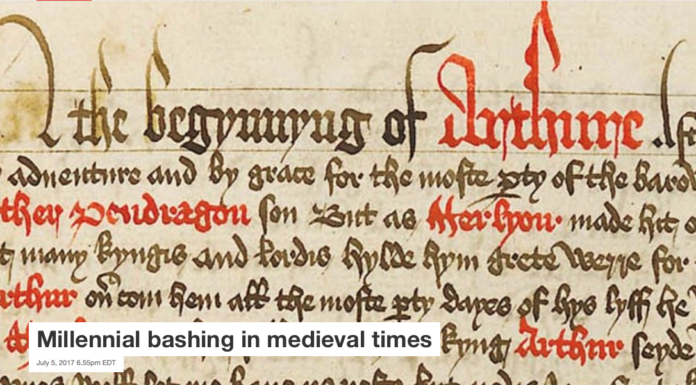 the begynnyng of Arthure
aduenture and by grace for the moste pty of the
ther Pendragon son But as Merlyon made hit
many kyngis and lordis hylde hym grete werre for
rthur com hem all the moste pty dayes of hys lyff he
kyng Arthur seyde
Millennial bashing in medieval times
July 5, 2017 6.55pm EDT